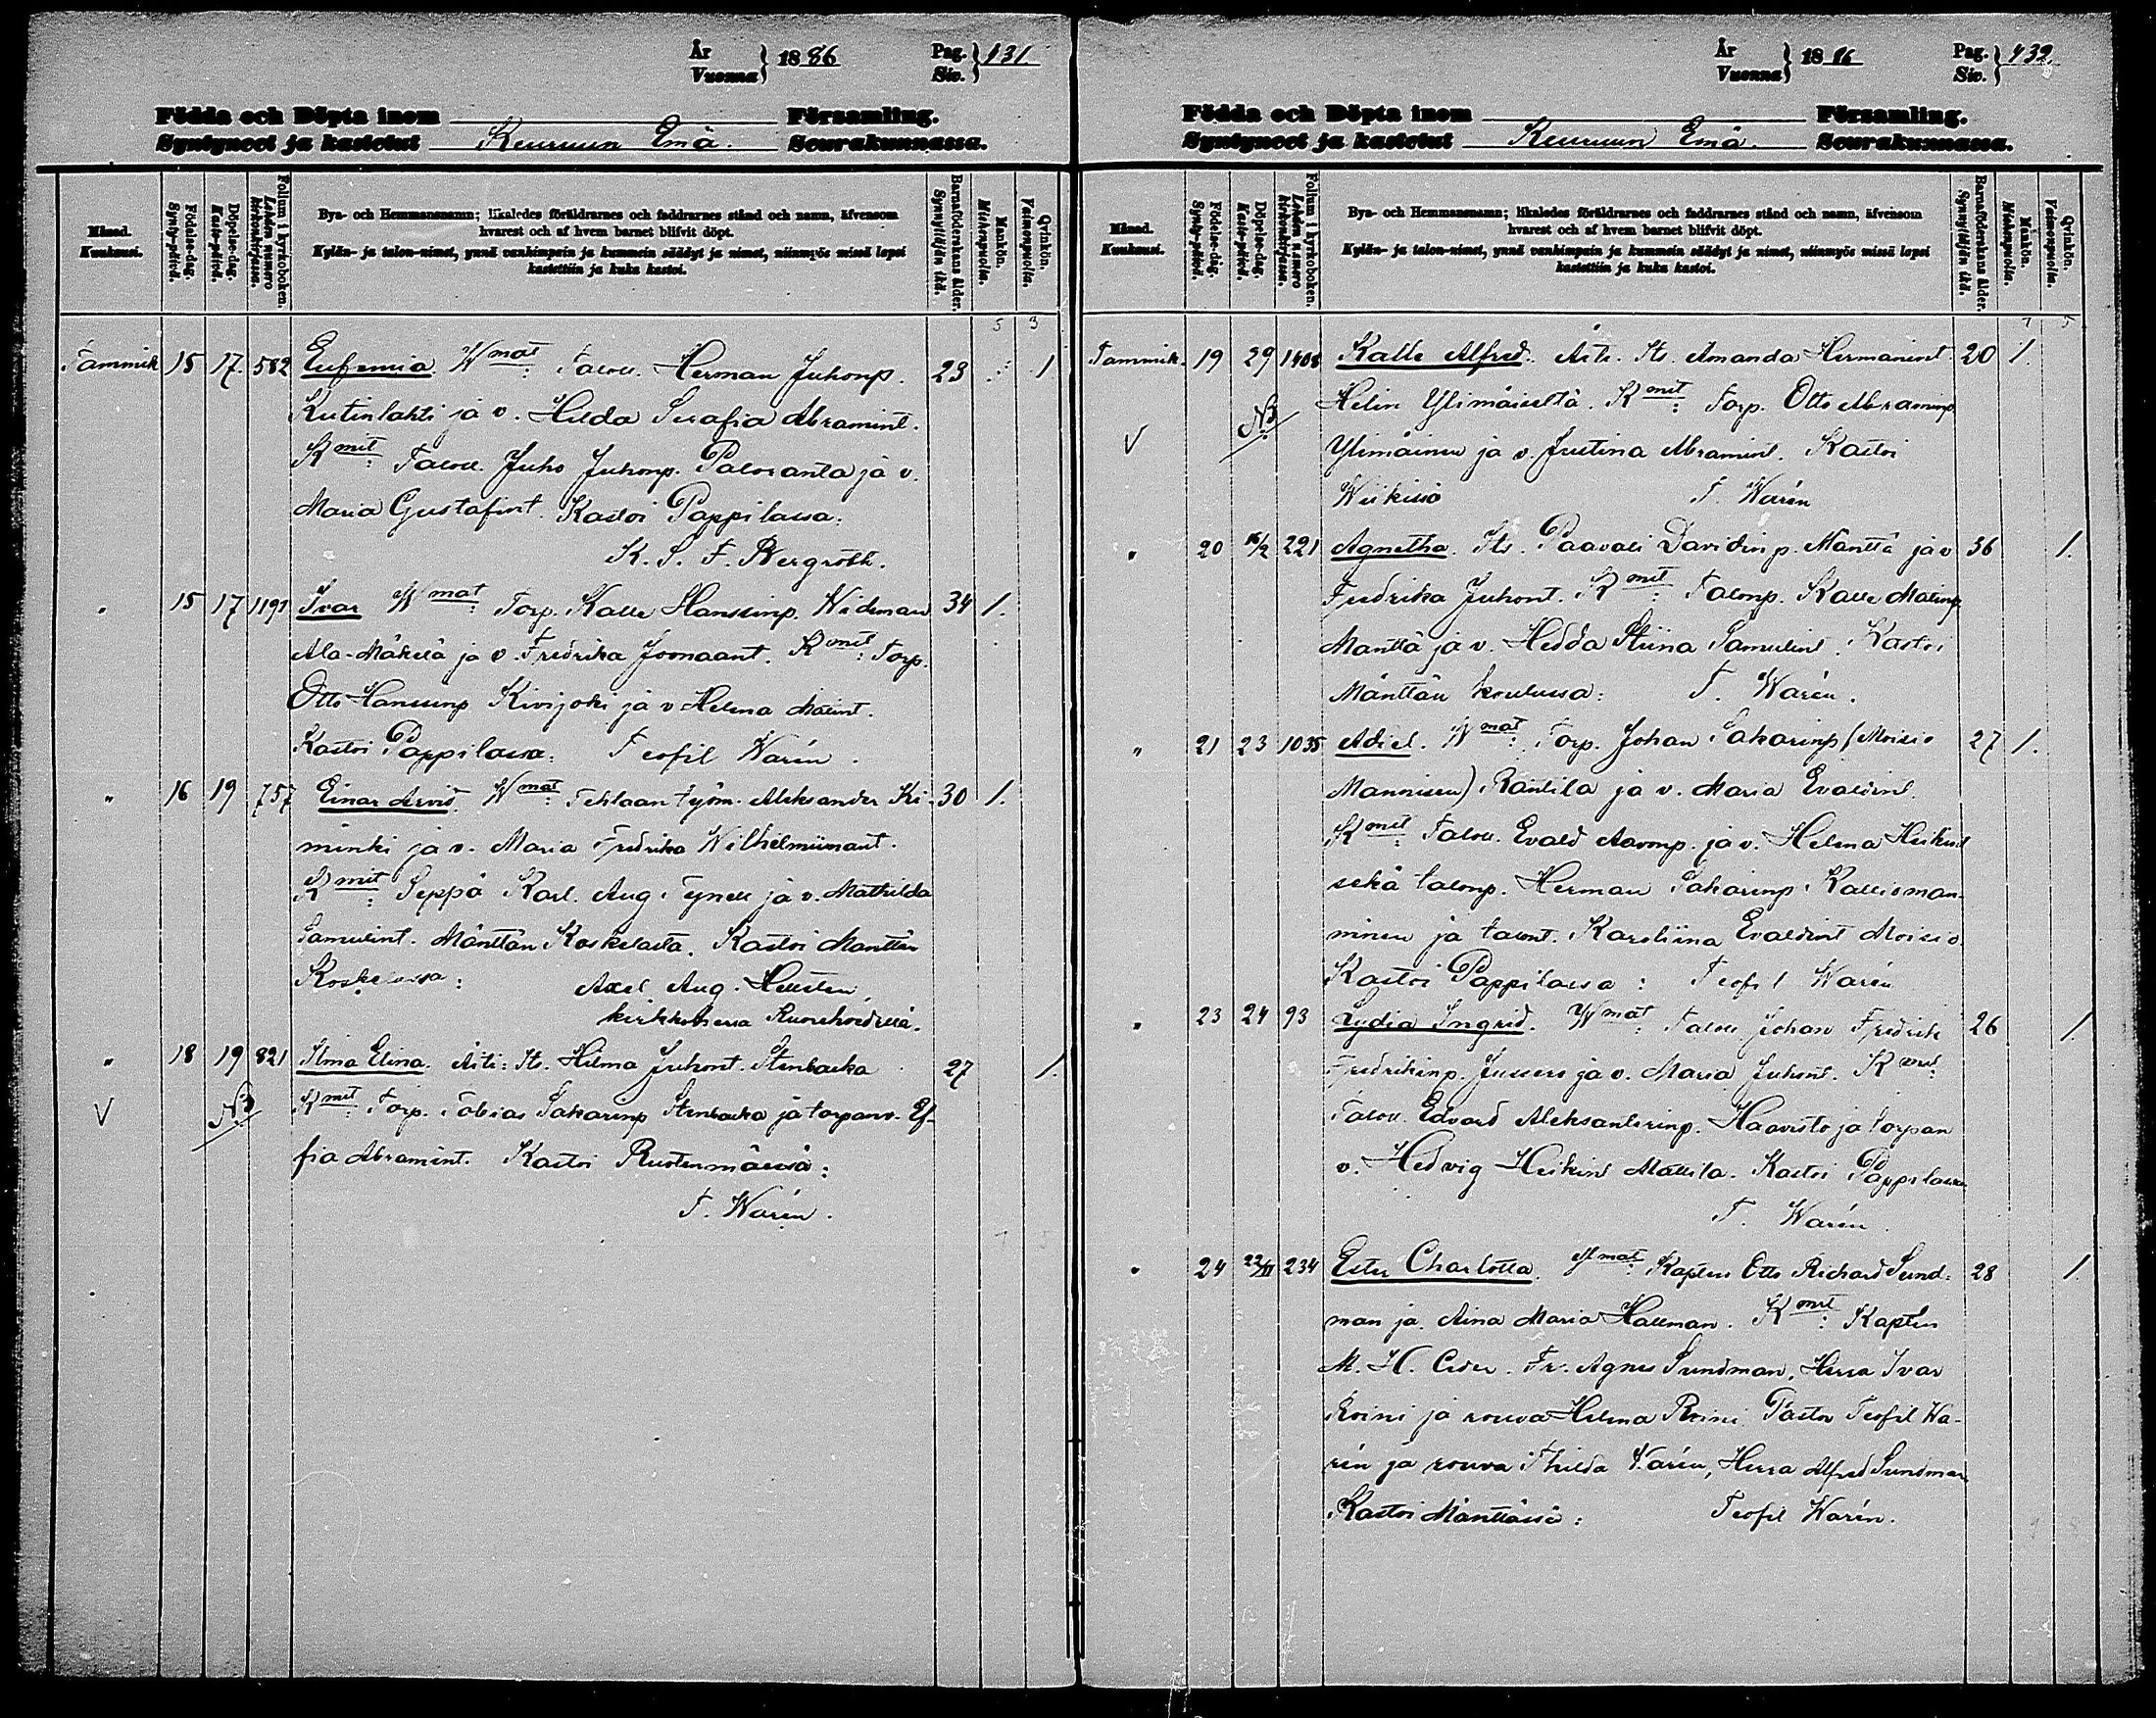 År
Vuonna } 1886
Pag.
Siv. } 131.
Födda och Döpta inom Församling.
Syntyneet ja kastetut Keuruun Emä. Seurakunnassa.
Månad.
Kuukausi.
Födelse-dag.
Synty-päivä.
Döpelse-dag.
Kaste-päivä.
Folium i kyrkoboken.
Lehden numero
kirkonkirjassa.
Bya- och Hemmansnamn; likaledes föräldrarnes och faddrarnes stånd och namn, äfvensom
hvarest och af hvem barnet blifvit döpt.
Kylän- ja talon-nimet, ynnä vanhimpain ja kummein säädyt ja nimet, niinmyös missä lapsi
kastettiin ja kuka kastoi.
Barnaföderskans ålder.
Synnyttäjän ikä.
Mankön.
Miehenpuolia.
Qvinkön.
Vaimonpuolia.
5 3
Tammik 15 17. 582 Eufemia. Wmat: Taloll. Herman Juhonp. 23 1
Kutinlahti ja v. Hilda Serafia Abramint.
Kmit: Taloll. Juho Juhonp. Paloranta ja v.
Maria Gustafint. Kastoi Pappilassa:
K. S. F. Bergroth.
" 15 17 1191 Ivar Wmat: Torp. Kalle Hanssinp. Widman 34 1.
Ala-Mäkelä ja v. Fredrika Joonaant. Kmit: Torp.
Otto Hanssinp Kivijoki ja v Helena Matint.
Kastoi Pappilassa: Teofil Warén.
" 16 19 757 Einar Arvid. Wmat: Tehtaan työm. Aleksander Ki- 30 1.
minki ja v. Maria Fredrika Wilhelmiinant.
Kmit: Seppä Karl. Aug. Tynell ja v. Mathilda
Samulint. Mänttän Koskelasta. Kastoi Mänttän
Koskelassa: Axel Aug. Hellsten,
kirkkoherra Ruovedellä.
" 18 19 821 Ilma Elina. Äiti: Its. Hilma Juhont. Stenbacka 27 1.
V NB Kmit: Torp. Tobias Sakarinp Stenbacka ja torpanv. Ef-
fia Abramint. Kastoi Rustenmäessä:
T. Warén.
År
Vuonna } 1886
Pag.
Siv. } 132.
Födda och Döpta inom Församling.
Syntyneet ja kastetut Keuruun Emä. Seurakunnassa.
Månad.
Kuukausi.
Födelse-dag.
Synty-päivä.
Döpelse-dag.
Kaste-päivä.
Folium i kyrkoboken.
Lehden numero
kirkonkirjassa.
Bya- och Hemmansnamn; likaledes föräldrarnes och faddrarnes stånd och namn, äfvensom
hvarest och af hvem barnet blifvit döpt.
Kylän- ja talon-nimet, ynnä vanhimpain ja kummein säädyt ja nimet, niinmyös missä lapsi
kastettiin ja kuka kastoi.
Barnaföderskans ålder.
Synnyttäjän ikä.
Mankön.
Miehenpuolia.
Qvinkön.
Vaimonpuolia.
7 5
Tammik. 19 29 1408 Kalle Alfred. Äiti. Its. Amanda Hermanint. 20 1.
NB Helin Ylimäiseltä. Kmit: Torp. Otto Abraminp
V Ylimäinen ja v. Justina Abramint. Kastoi
T. Warén
" 20 16/2 221 Agnetha. Its. Paavali Davidinp. Mänttä ja v 36 1.
Fredrika Juhont. Kmit: Talonp. Kalle Matinp
Mänttä ja v. Hedda Stiina Samulint. Kastoi
Mänttän koulussa: T. Warén.
" 21 23 1035 Adiel. Wmat: Torp. Johan Sakarinp (Moisio 27 1.
Manninen) Rantila ja v. Maria Evaldint.
Kmit: Taloll. Evald Aaronp. ja v. Helena Heikint
sekä talonp. Herman Sakarinp. Kallioman-
ninen ja talont. Karoliina Evaldint Moisio
Kastoi Pappilassa: Teofil Warén
" 23 24 93 Lydia Ingrid. Wmat: Taloll Johan Fredrik 26 1.
Fredrikinp. Jussero ja v. Maria Juhont. Kmit:
Taloll. Edvard Aleksanterinp. Haavisto ja torpan
v. Hedvig Heikint Mattila. Kastoi Pappilassa
T. Warén.
" 24 22/II 234 Ester Charlotta. Wmat: Kapten Otto Richard Sund- 28 1.
man ja Aina Maria Hallman. Kmit: Kapten
M. H. Ceder. Fr. Agnes Sundman, Herra Ivar
Roini ja rouva Helena Roini. Pastor Teofil Wa-
rén ja rouva Thilda Warén, Herra Alfred Sundman
Kastoi Mänttässä: Teofil Warén.